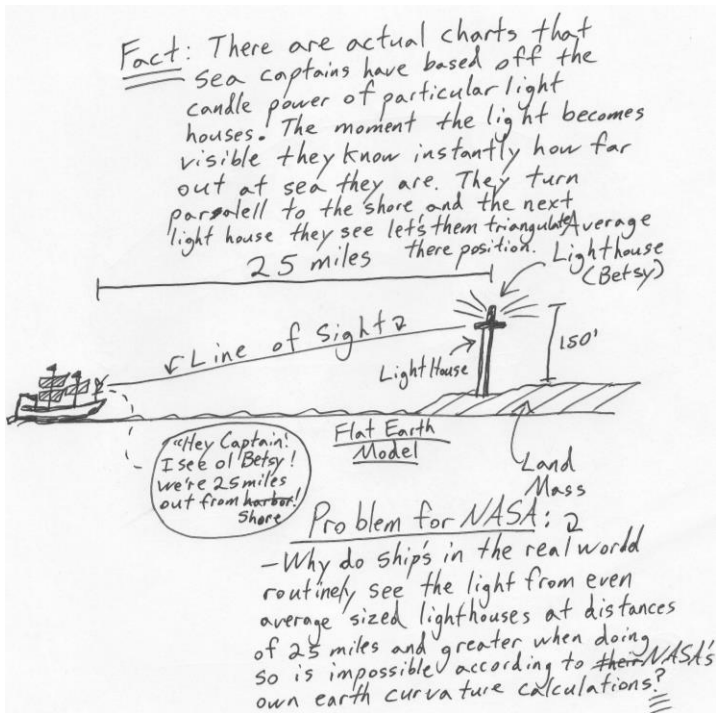 Fact: There are actual charts that
sea captains have based off the
candle power of particular light
houses. The moment the light becomes
visible they know instantly how far
out at sea they are. They turn
paralell to the shore and the next
light house they see let's them triangulate
there position.
Average
Lighthouse
(Betsy)
25 miles
Line of Sight
Light House
150'
"Hey Captain!
I see ol' Betsy!
we're 25 miles
out from harbor!
Shore
Flat Earth
Model
Land
Mass
Problem for NASA:
-Why do ship's in the real world
routinely see the light from even
average sized lighthouses at distances
of 25 miles and greater when doing
so is impossible according to their NASA's
own earth curvature calculations?